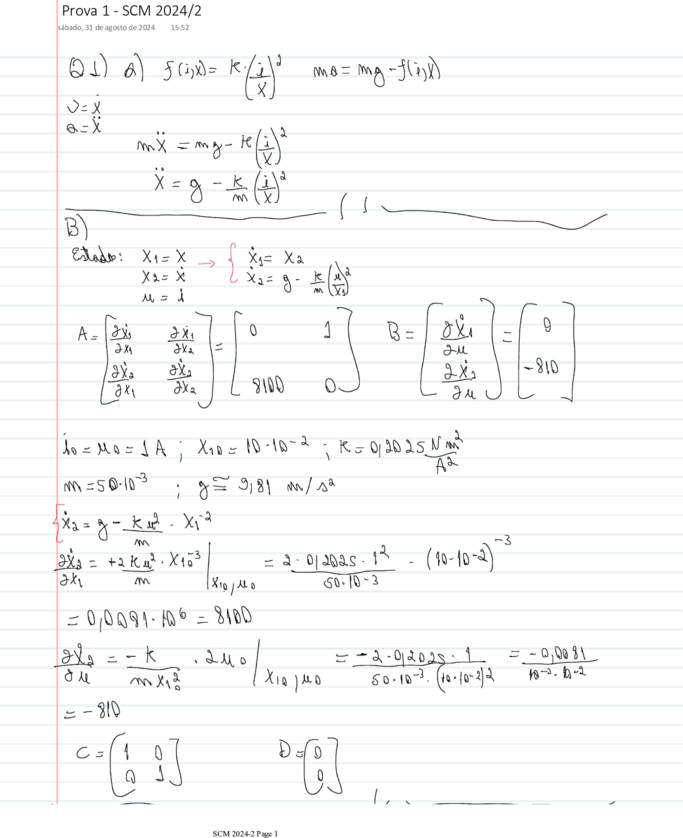 Prova 1 - SCM 2024/2
sábado, 31 de agosto de 2024 15:52
Q1) a) f(i,x) = K·(i/x)² ma = mg - f(i,x)
v = ẋ
a = ẍ
mẍ = mg - K(i/x)²
ẍ = g - K/m (i/x)²
B)
Estado: x1 = x → { ẋ1 = x2
x2 = ẋ ẋ2 = g - K/m (u/x1)²
u = i
A = [∂ẋ1/∂x1 ∂ẋ1/∂x2; ∂ẋ2/∂x1 ∂ẋ2/∂x2] = [0 1; 8100 0] B = [∂ẋ1/∂u; ∂ẋ2/∂u] = [0; -810]
i0 = u0 = 1A ; x10 = 10·10⁻² ; K = 0,2025 Nm²/A²
m = 50·10⁻³ ; g ≅ 9,81 m/s²
{ ẋ2 = g - Ku²/m · x1⁻²
∂ẋ2/∂x1 = +2Ku²/m · x10⁻³ |x10,u0 = 2·0,2025·1²/50·10⁻³ · (10·10⁻²)⁻³
= 0,0081·10⁶ = 8100
∂ẋ2/∂u = -K/m x1²0 · 2u0 |x10,u0 = -2·0,2025·1/50·10⁻³·(10·10⁻²)2 = -0,0081/10⁻³·10⁻²
= -810
C = (1 0; 0 1) D = (0; 0)
SCM 2024-2 Page 1